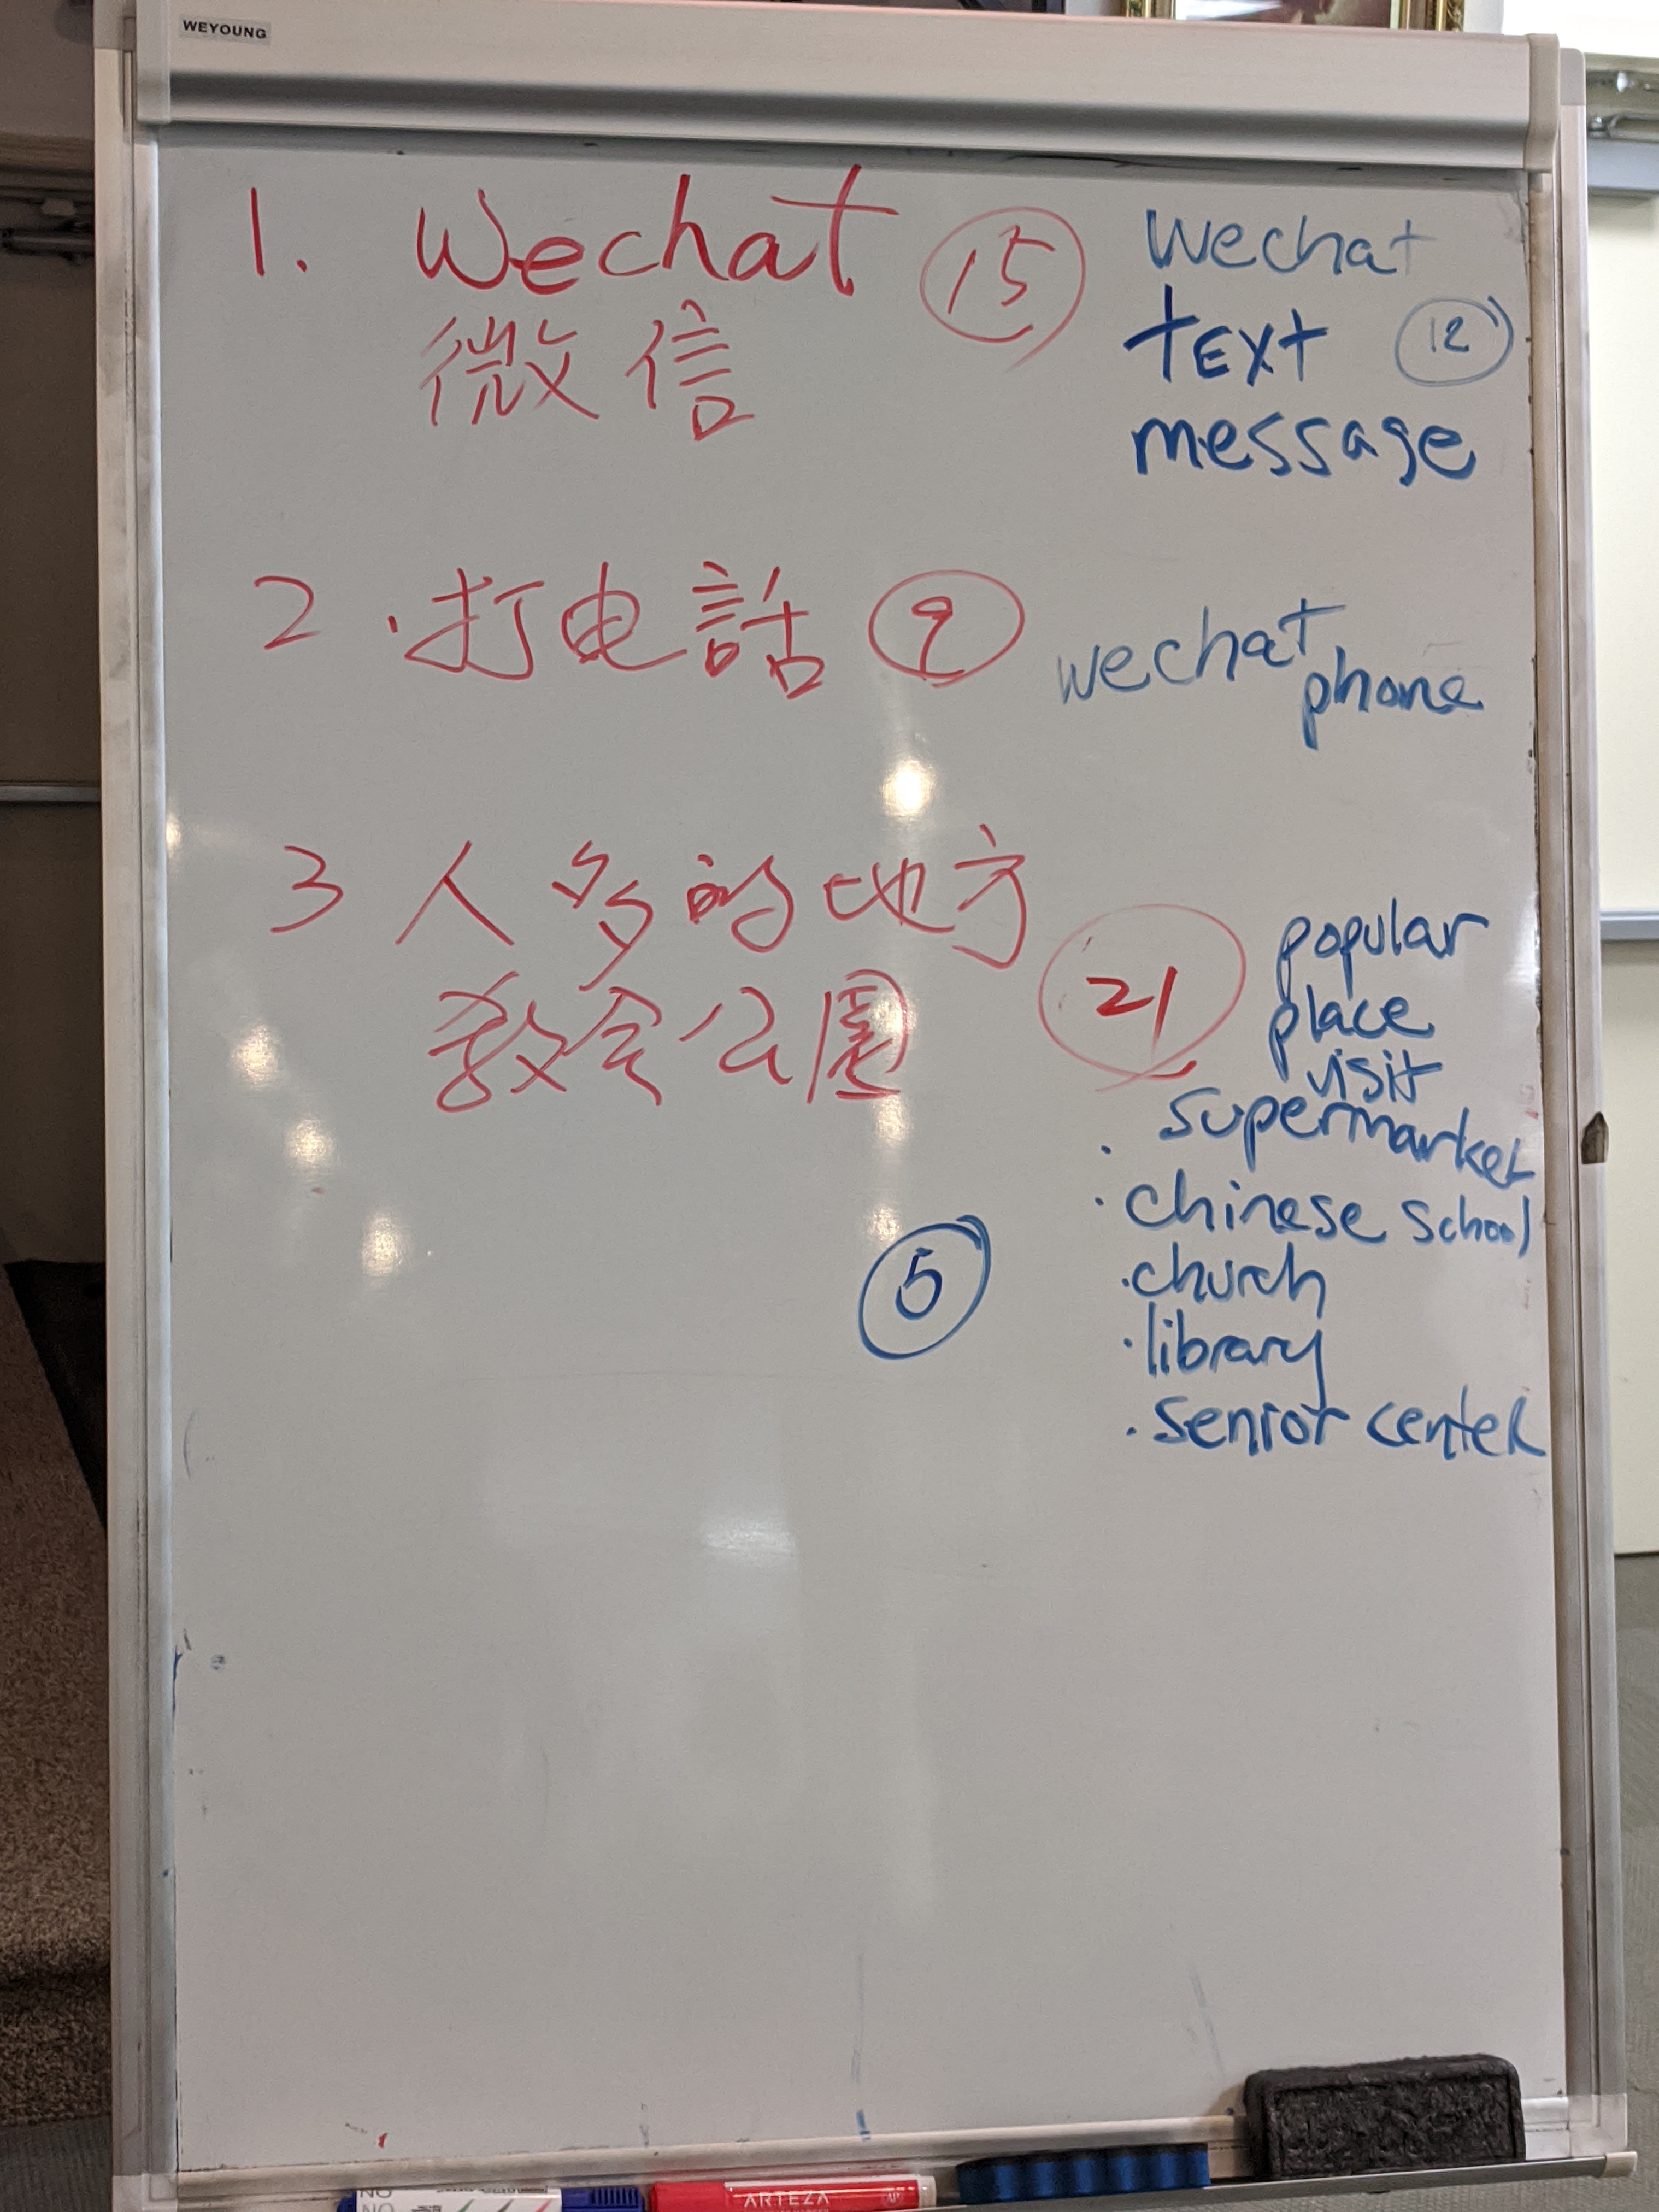 WEYOUNG
1. Wechat 15
微信
wechat
text 12
message
2. 打电話 9
wechat phone
3 人多的地方
教会公園
21
popular
place
visit
· supermarket
· chinese school
· church
· library
· senior center
5
ARTEZA